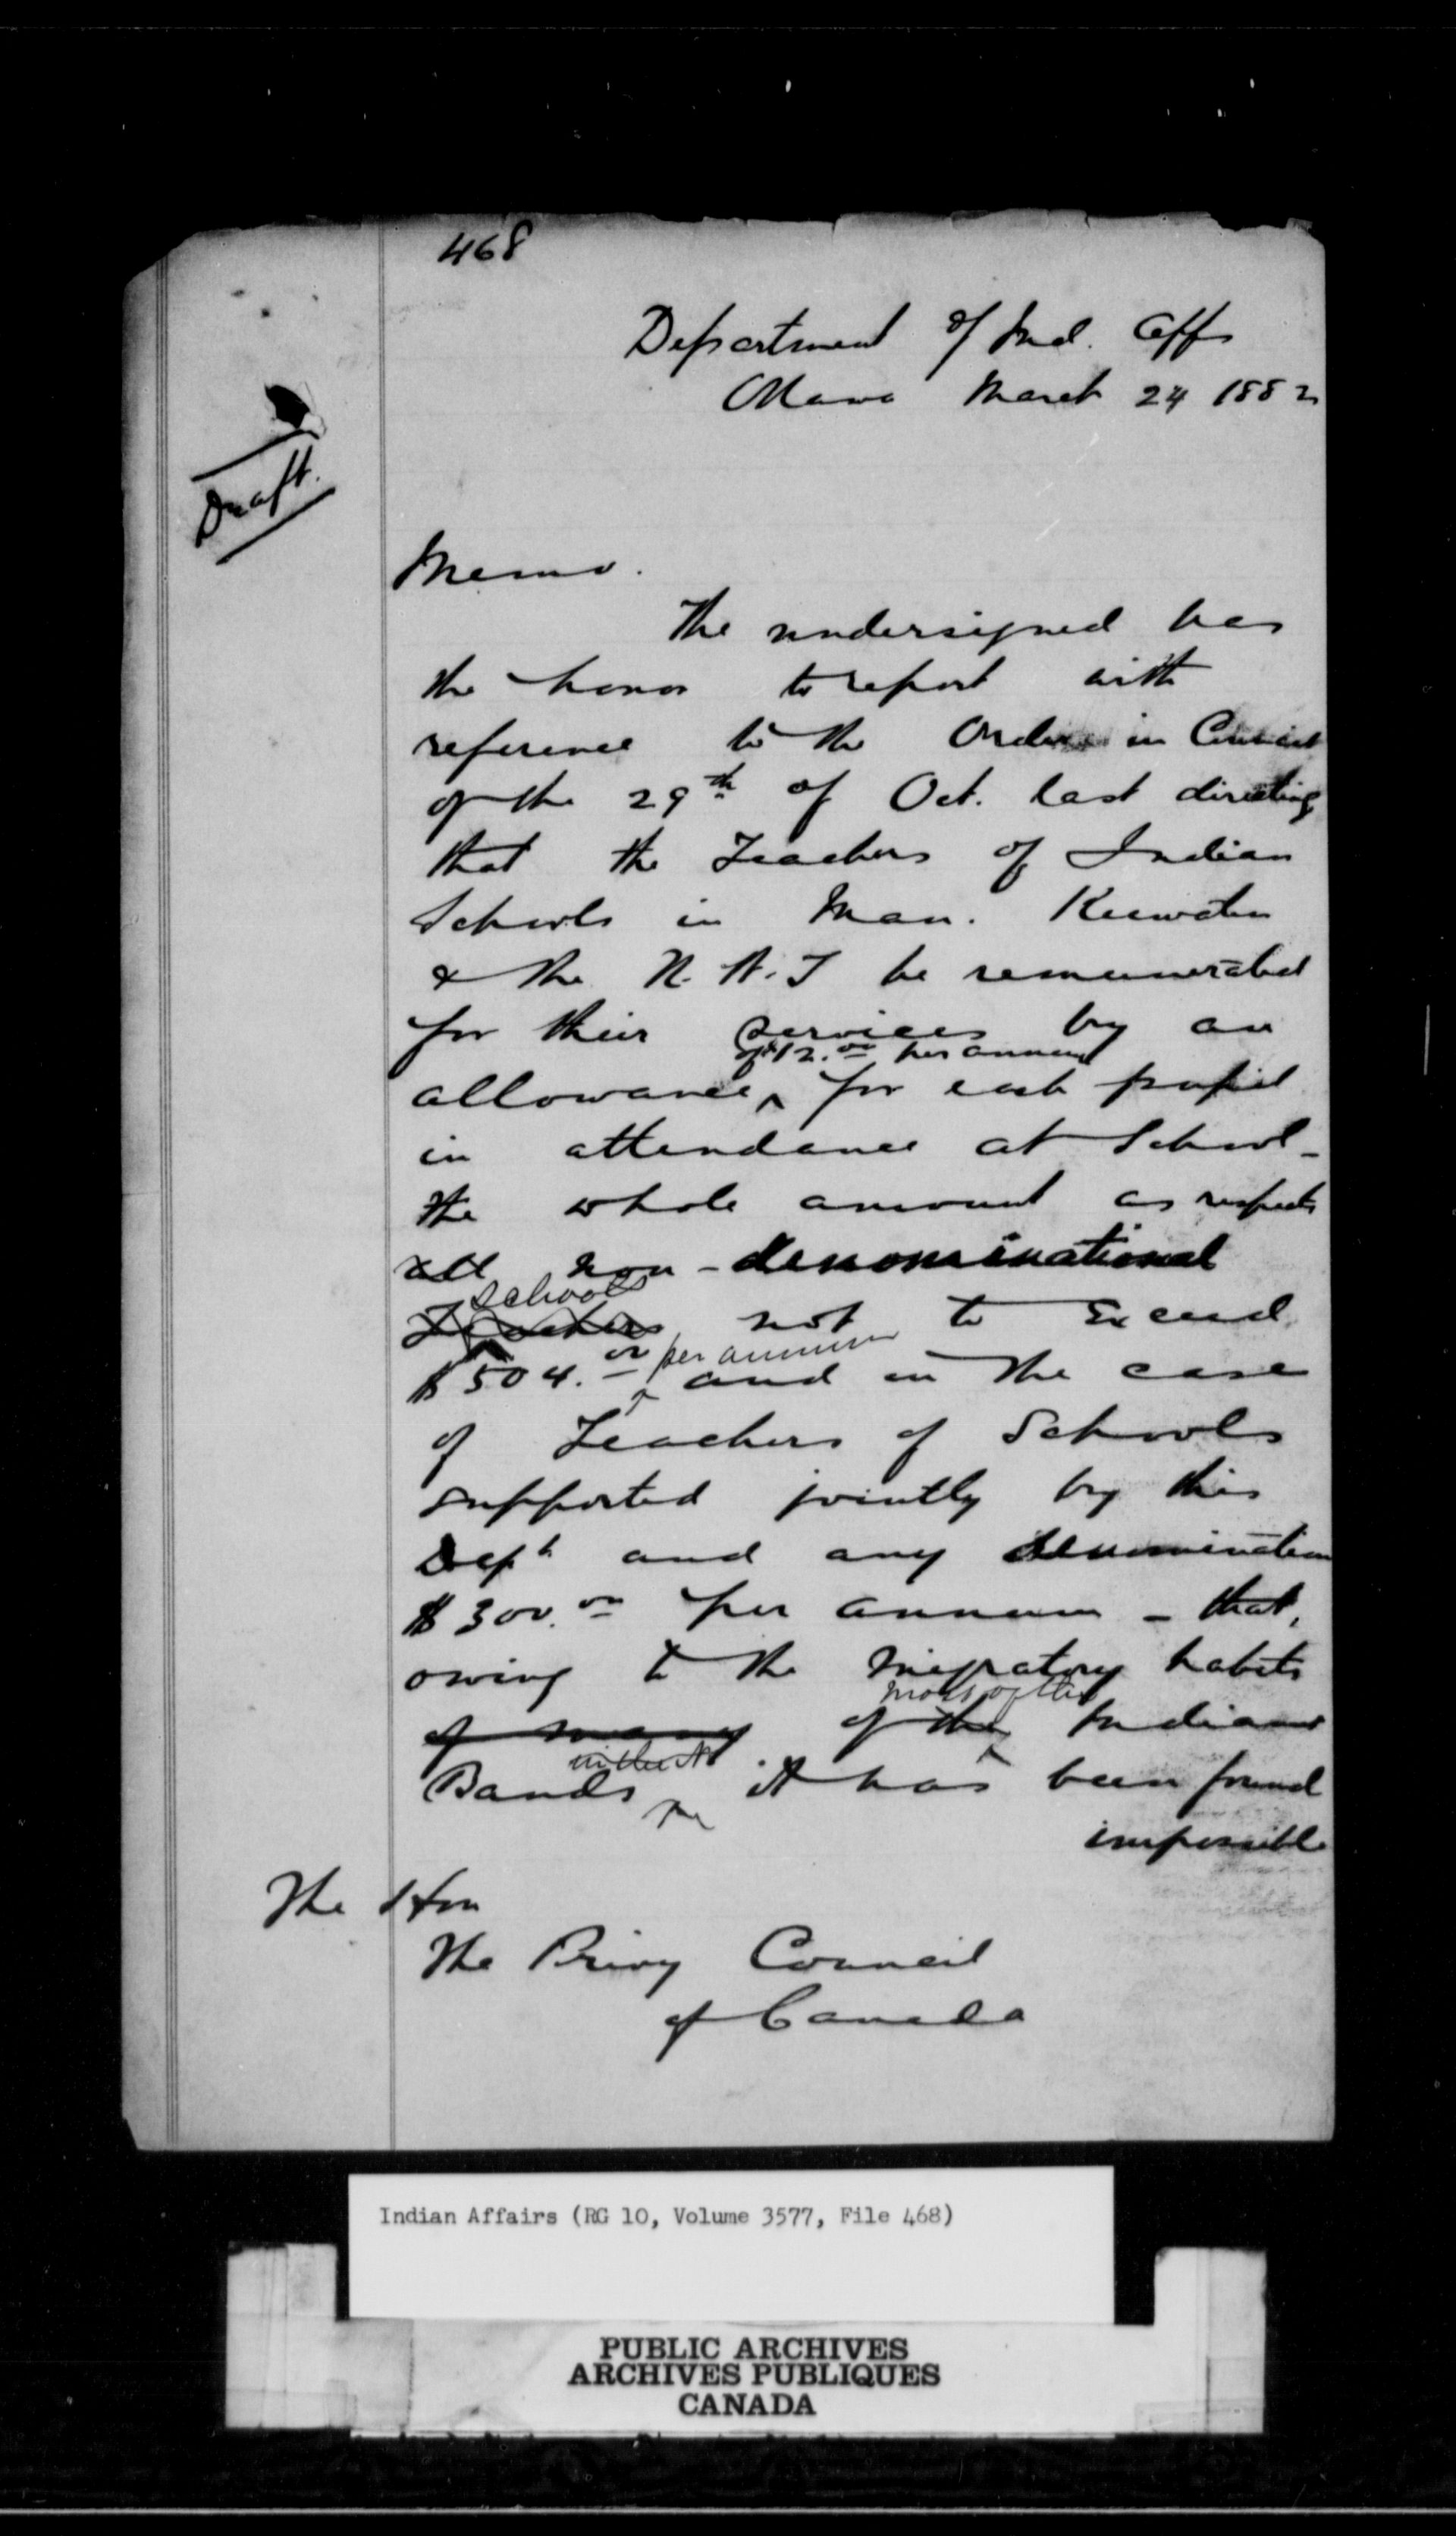 468
Department of Ind. Affs
Ottawa March 24 1882
Draft.
Memo.
The undersigned has
the honor to report with
reference to the Order in Council
of the 29th of Oct. last directing
that the Teachers of Indian
Schools in Man. Keewatin
& the N.W.T be remunerated
for their services by an
of $12.00 per annum
allowance for each pupil
in attendance at School -
the whole amount as respects
all non-denominational
Schools
Teachers not to exceed
per annum
$504.00 and in the case
of Teachers of Schools
supported jointly by this
Dept and any denomination
$300.00 per annum - that,
owing to the migratory habits
most of the
of many of the Indian
in the
Bands it has been found
impossible
The Hon
The Privy Council
of Canada
Indian Affairs (RG 10, Volume 3577, File 468)
PUBLIC ARCHIVES
ARCHIVES PUBLIQUES
CANADA